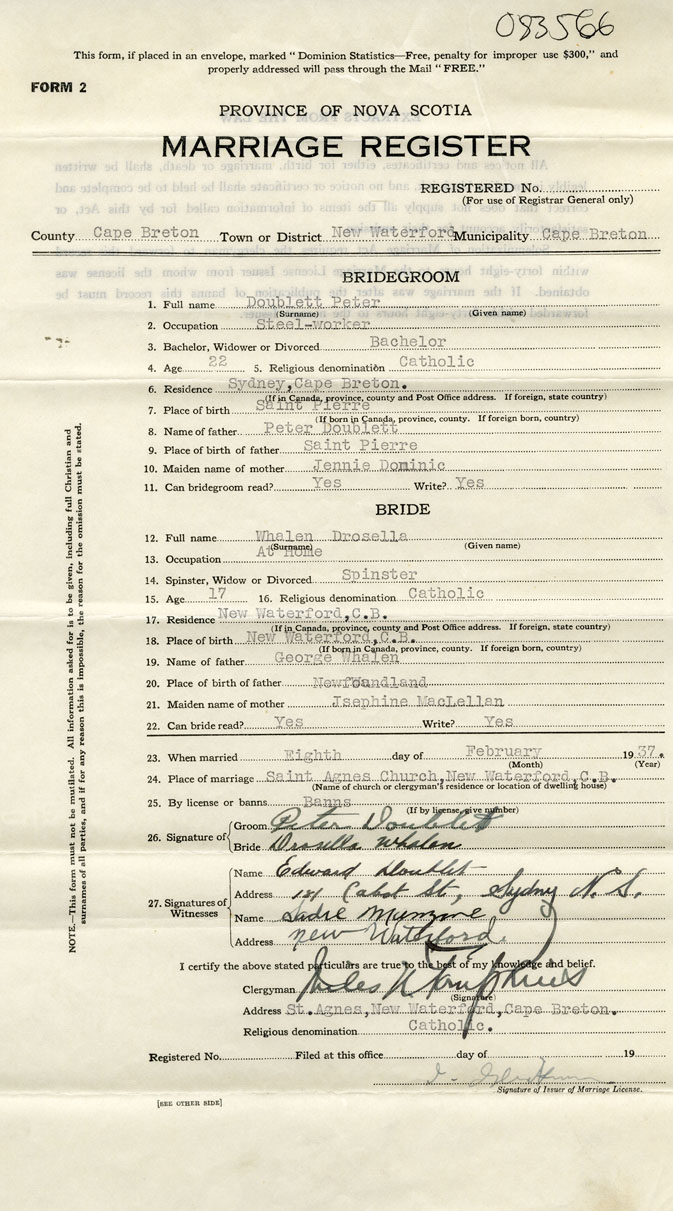 083566
This form, if placed in an envelope, marked "Dominion Statistics—Free, penalty for improper use $300," and
properly addressed will pass through the Mail "FREE."
FORM 2
PROVINCE OF NOVA SCOTIA
MARRIAGE REGISTER
REGISTERED No.
(For use of Registrar General only)
County Cape Breton Town or District New Waterford Municipality Cape Breton
BRIDEGROOM
1. Full name Doublett Peter
(Surname) (Given name)
2. Occupation Steel-worker
3. Bachelor, Widower or Divorced Bachelor
4. Age 22 5. Religious denomination Catholic
6. Residence Sydney,Cape Breton.
(If in Canada, province, county and Post Office address. If foreign, state country)
7. Place of birth Saint Pierre
(If born in Canada, province, county. If foreign born, country)
8. Name of father Peter Doublett
9. Place of birth of father Saint Pierre
10. Maiden name of mother Jennie Dominic
11. Can bridegroom read? Yes Write? Yes
BRIDE
12. Full name Whalen Drosella
(Surname) (Given name)
13. Occupation At Home
14. Spinster, Widow or Divorced Spinster
15. Age 17 16. Religious denomination Catholic
17. Residence New Waterford,C.B.
(If in Canada, province, county and Post Office address. If foreign, state country)
18. Place of birth New Waterford,C.B.
(If born in Canada, province, county. If foreign born, country)
19. Name of father George Whalen
20. Place of birth of father Newfoundland
21. Maiden name of mother Jsephine MacLellan
22. Can bride read? Yes Write? Yes
23. When married Eighth day of February 1937.
(Month) (Year)
24. Place of marriage Saint Agnes Church,New Waterford,C.B.
(Name of church or clergyman's residence or location of dwelling house)
25. By license or banns Banns
(If by license, give number)
26. Signature of
Groom Peter Doublet
Bride Drosella Whalen
27. Signatures of Witnesses
Name Edward Doublet
Address 181 Cabot St, Sydney N.S.
Name Sadie
Address New Waterford.
I certify the above stated particulars are true to the best of my knowledge and belief.
Clergyman
(Signature)
Address St.Agnes,New Waterford,Cape Breton.
Religious denomination Catholic.
Registered No. Filed at this office day of 19
Signature of Issuer of Marriage License.
[SEE OTHER SIDE]
NOTE.—This form must not be mutilated. All information asked for is to be given, including full Christian and
surnames of all parties, and if for any reason this is impossible, the reason for the omission must be stated.